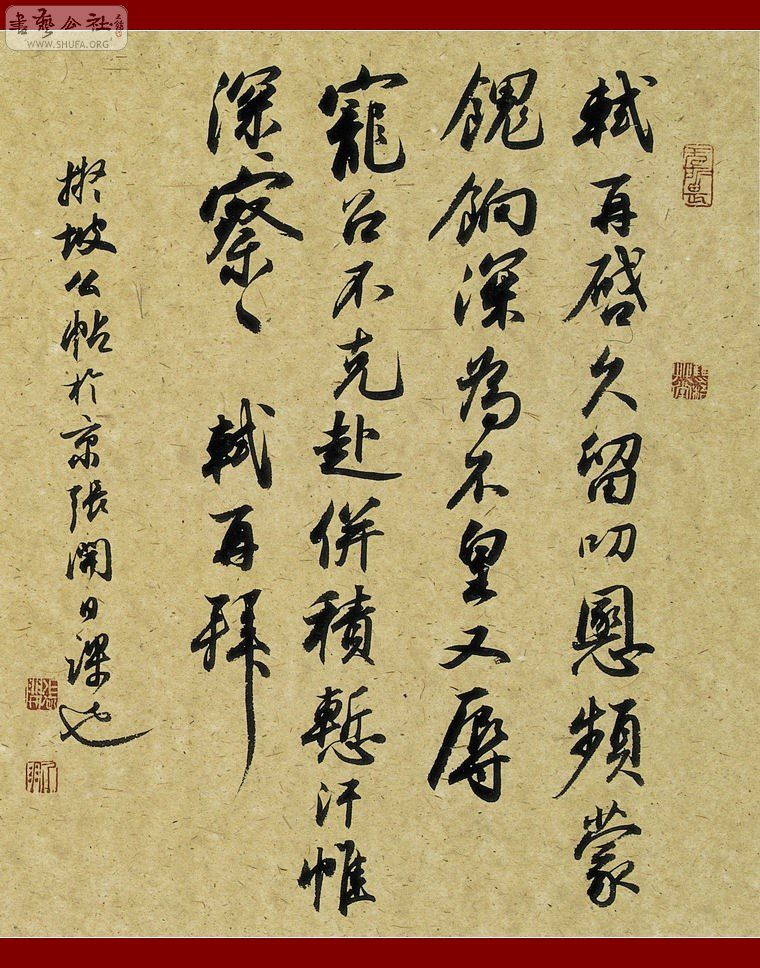 軾再啓久留叨恩頻蒙
餽餉深為不皇又辱
寵召不克赴併積慙汗惟
深察々 軾再拜
擬坡公帖於京張開日課也
書藝公社
WWW.SHUFA.ORG